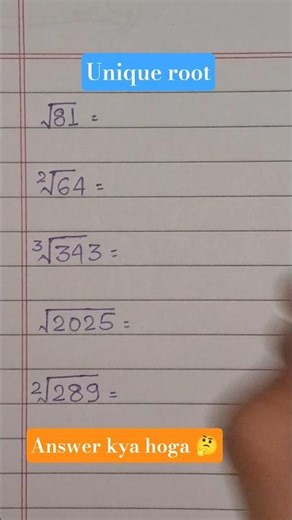 Unique root
√81 =
²√64 =
³√343 =
√2025 =
²√289 =
Answer kya hoga 🤔